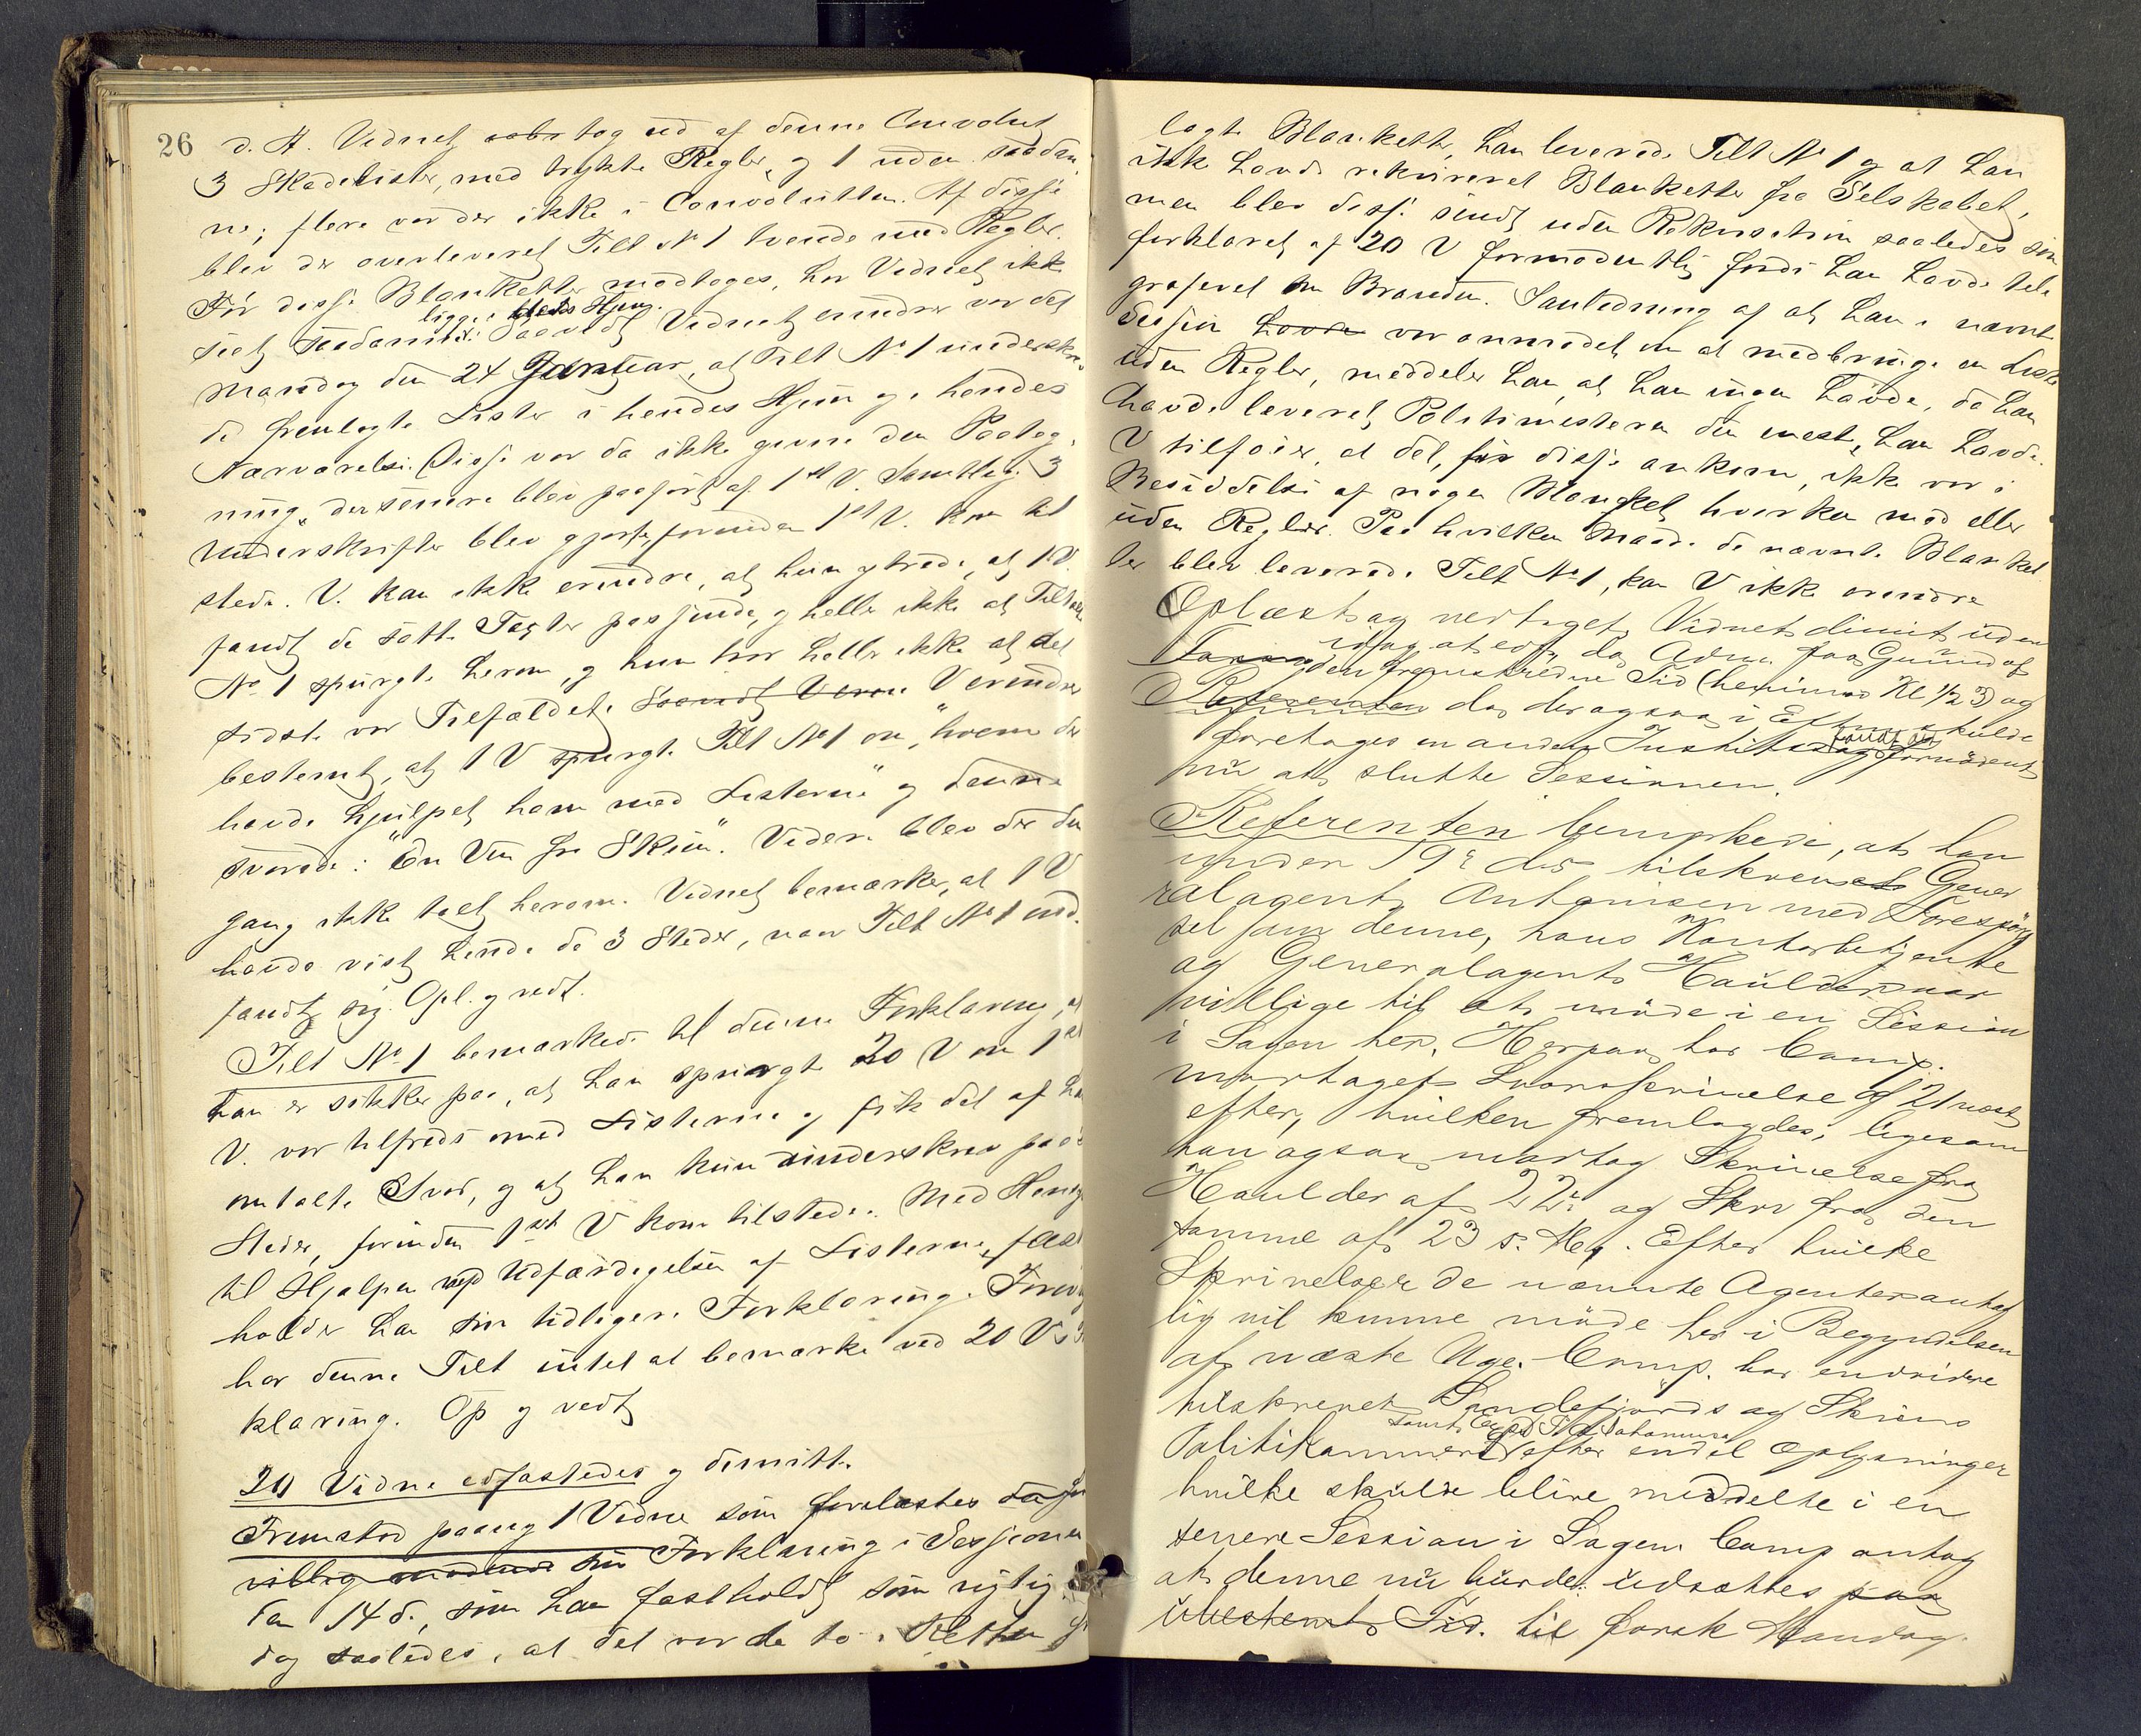 26
d. A. Vidnet tog ud af denne Convolut
3 Skadelister, med trykte Regler, og 1 uden saadan
ne; flere var der ikke i Convolutten. Af disse
blev der overleveret Tilt No 1 tvende med Regler.
Før disse Blanketter modtoges, har Vidnet ikke
ligge i hendes Hjem.
seet saadanne. Saavidt Vidnet erindrer var det
Mandag den 24 Januar, at Tilt No 1 underskrev
de fremlagte Lister i hendes Hjem og i hendes
Nærværelse. Disse var da ikke givne den Paateg
ning, der senere blev paaført af 1st V. Samtlige 3
Underskrifter blev gjort, forinden 1st V. kom til
stede. V. kan ikke erindre, at hun ytrede, at 1 V.
fandt de satte Taxter passende, og heller ikke at Tiltalte
No 1 spurgte herom, og hun tror heller ikke at det
sidste var Tilfældet. V erindrer
bestemt, at 1 V spurgte Tilt No 1 om, "hvem der
havde hjulpet ham med Listerne" og denne
svarede: "En Ven fra Skien". Videre blev der den
Gang ikke talt herom. Vidnet bemærker, at 1 V
havde vist hende de 3 Steder, naar Tilt No 1 ind
fandt sig. Opl. og vedt.
Tilt No 1 bemærkede til denne Forklaring, at
han er sikker paa, at han spurgte 20 V om 1st
V. var tilfreds med Listerne og fik det af ham
omtalte Svar, og at han kun underskrev paa 2
Steder, forinden 1st V kom tilstede. Med Hensyn
til Hjælpen ved Udfærdigelsen af Listerne, fast
holder han sin tidligere Forklaring. Forøvrigt
har denne Tilt intet at bemærke ved 20 V's For
klaring. Op og vedt
20 Vidne edfæstedes og dimitt.
Fremstod paany 1 Vidne som forelæstes
villig mødende sin Forklaring i Sessionen
den 14 d., som han fastholdt som rigtig.
dog saaledes, at det var de to i Retten
lagte Blanketter, han leverede Tilt No 1 og at han
ikke havde rekvireret Blanketter fra Selskabet,
men blev disse sendt uden Rekvisition saaledes som
forklaret af 20 V formodentlig fordi han havde tele
graferet om Branden. I Anledning af at han i nævnte
Session havde var anmodet om at medbringe en Liste
uden Regler, meddeler han, at han ingen havde, da han
havde leveret Politimesteren den eneste, han havde.
V tilføier, at det, før disse ankom, ikke var i
Besiddelse af nogen Blanket, hverken med eller
uden Regler. Paa hvilken Maade de nævnte Blanket
ter blev leverede Tilt No 1, kan V ikke erindre
Oplæst og vedtaget. Vidnet dimit uden
idag at edf., da Adm. paa Grund af
den fremskredne Tid (henimod Kl 1/2 3) og
Referenten da der ogsaa i Eftm skulde
foretages en anden Justits fandt at
nu at slutte Sessionen.
Referenten bemærkede, at han
under 19de ds tilskrev Gener
alagent Anthonisen med Forespørg
sel om denne, hans Kontorbetjente
og Generalagent Haulder var
villige til at møde i en Session
i Sagen her. Herpaa har Comp.
modtaget Svarskrivelse af 21 næst
efter, hvilken fremlagdes, ligesom
han ogsaa modtog Skrivelse fra
Haulder af 22de og Skr fra den
samme af 23 s. M. Efter hvilke
Skrivelser de nævnte Agenter antag
lig vil kunne møde her i Begyndelsen
af næste Uge. Comp. har endvidere
tilskrevet Sandefjords og Skiens
Politikammere efter endel Oplysninger
hvilke skulde blive meddelte i en
senere Session i Sagen. Comp antog
at denne nu burde udsættes paa
ubestemt Tid. til førstk Mandag.